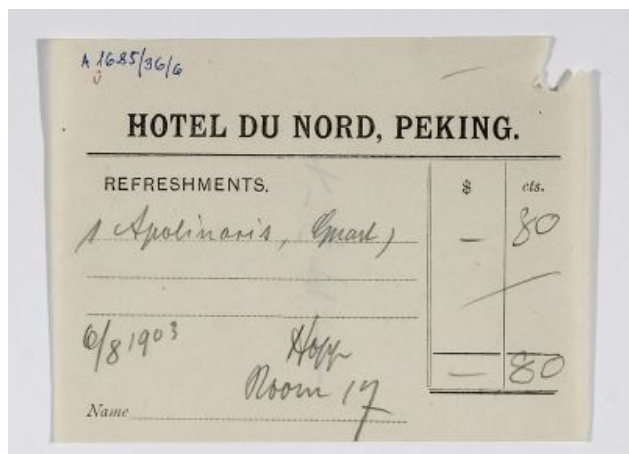 A 1685/36/6
HOTEL DU NORD, PEKING.
REFRESHMENTS. $ cts.
1 Apolinaris, Quart) — 80
6/8 1903 Hopp
— 80
Room 17
Name